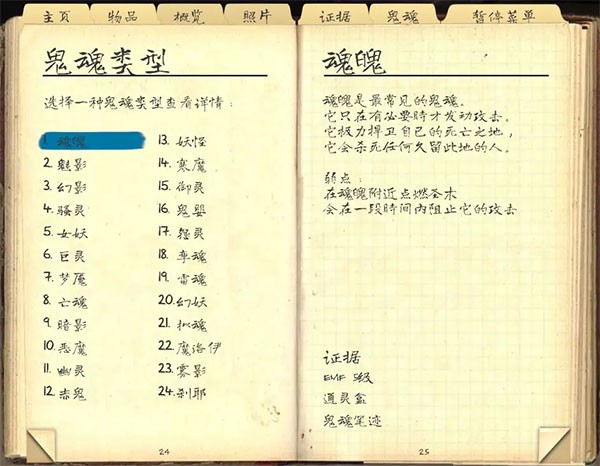 主页
物品
概览
照片
证据
鬼魂
暂停菜单
鬼魂类型
选择一种鬼魂类型查看详情:
1. 魂魄
2. 魅影
3. 幻影
4. 骚灵
5. 女妖
6. 巨灵
7. 梦魇
8. 亡魂
9. 暗影
10. 恶魔
11. 幽灵
12. 赤鬼
13. 妖怪
14. 寒魔
15. 御灵
16. 鬼婴
17. 怨灵
18. 孪魂
19. 雷魂
20. 幻妖
21. 拟魂
22. 魔洛伊
23. 雾影
24. 刹耶
24
魂魄
魂魄是最常见的鬼魂。
它只在有必要時才发动攻击。
它极力捍卫自己的死亡之地,
它会杀死任何久留此地的人。
弱点:
在魂魄附近点燃圣木
会在一段時间内阻止它的攻击
证据
EMF 5级
通灵盒
鬼魂笔迹
25